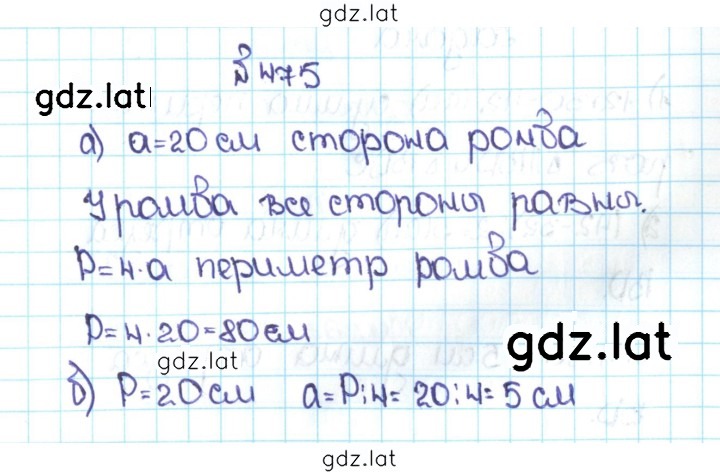 gdz.lat
№ 475
gdz.lat
а) a=20 см сторона ромба
У ромба все стороны равны.
P=4·a периметр ромба
P=4·20=80 см
gdz.lat
gdz.lat
б) P=20 см a=P:4=20:4=5 см
gdz.lat